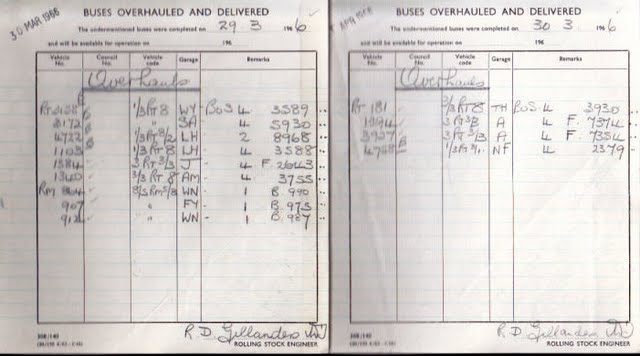 30 MAR 1966
BUSES OVERHAULED AND DELIVERED
The undermentioned buses were completed on 29. 3 1966
and will be available for operation on 196
Vehicle No. Council No. Vehicle code Garage Remarks
Overhauls
1/3 RT 8 WY BoS 4 3589
3172 SA 4 5930
4722 LH 2 8968
1103 1/3 RT 8 LH 4 3588
1384 3 RT 3/3 J 4 F. 2643
1340 3/3 RT 8 AM 4 3755
RM 864 WN 1 B. 990
907 " FY 1 B. 975
912 " WN 1 B. 987
R.D. Gillanders
ROLLING STOCK ENGINEER
BUSES OVERHAULED AND DELIVERED
The undermentioned buses were completed on 30 3. 1966
and will be available for operation on 196
Vehicle No. Council No. Vehicle code Garage Remarks
Overhauls
RT 181 3/3 RT 8 TH BoS. 4 3930
1394 A 4 F. 7374
3937 A 4 F. 7354
4758 NF 4 2379
R.D. Gillanders
ROLLING STOCK ENGINEER